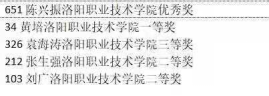 651 陈兴振洛阳职业技术学院优秀奖
34 黄培洛阳职业技术学院一等奖
326 袁海涛洛阳职业技术学院三等奖
212 张生强洛阳职业技术学院二等奖
103 刘广洛阳职业技术学院二等奖